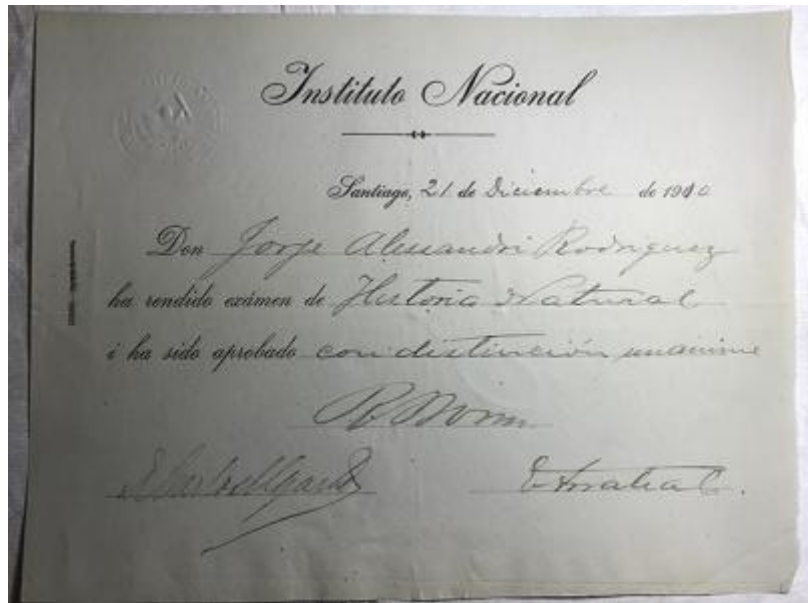 Instituto Nacional
Santiago, 21 de Diciembre de 1910
Don Jorje Alessandri Rodriguez
ha rendido exámen de Historia Natural
i ha sido aprobado con distinción unanime